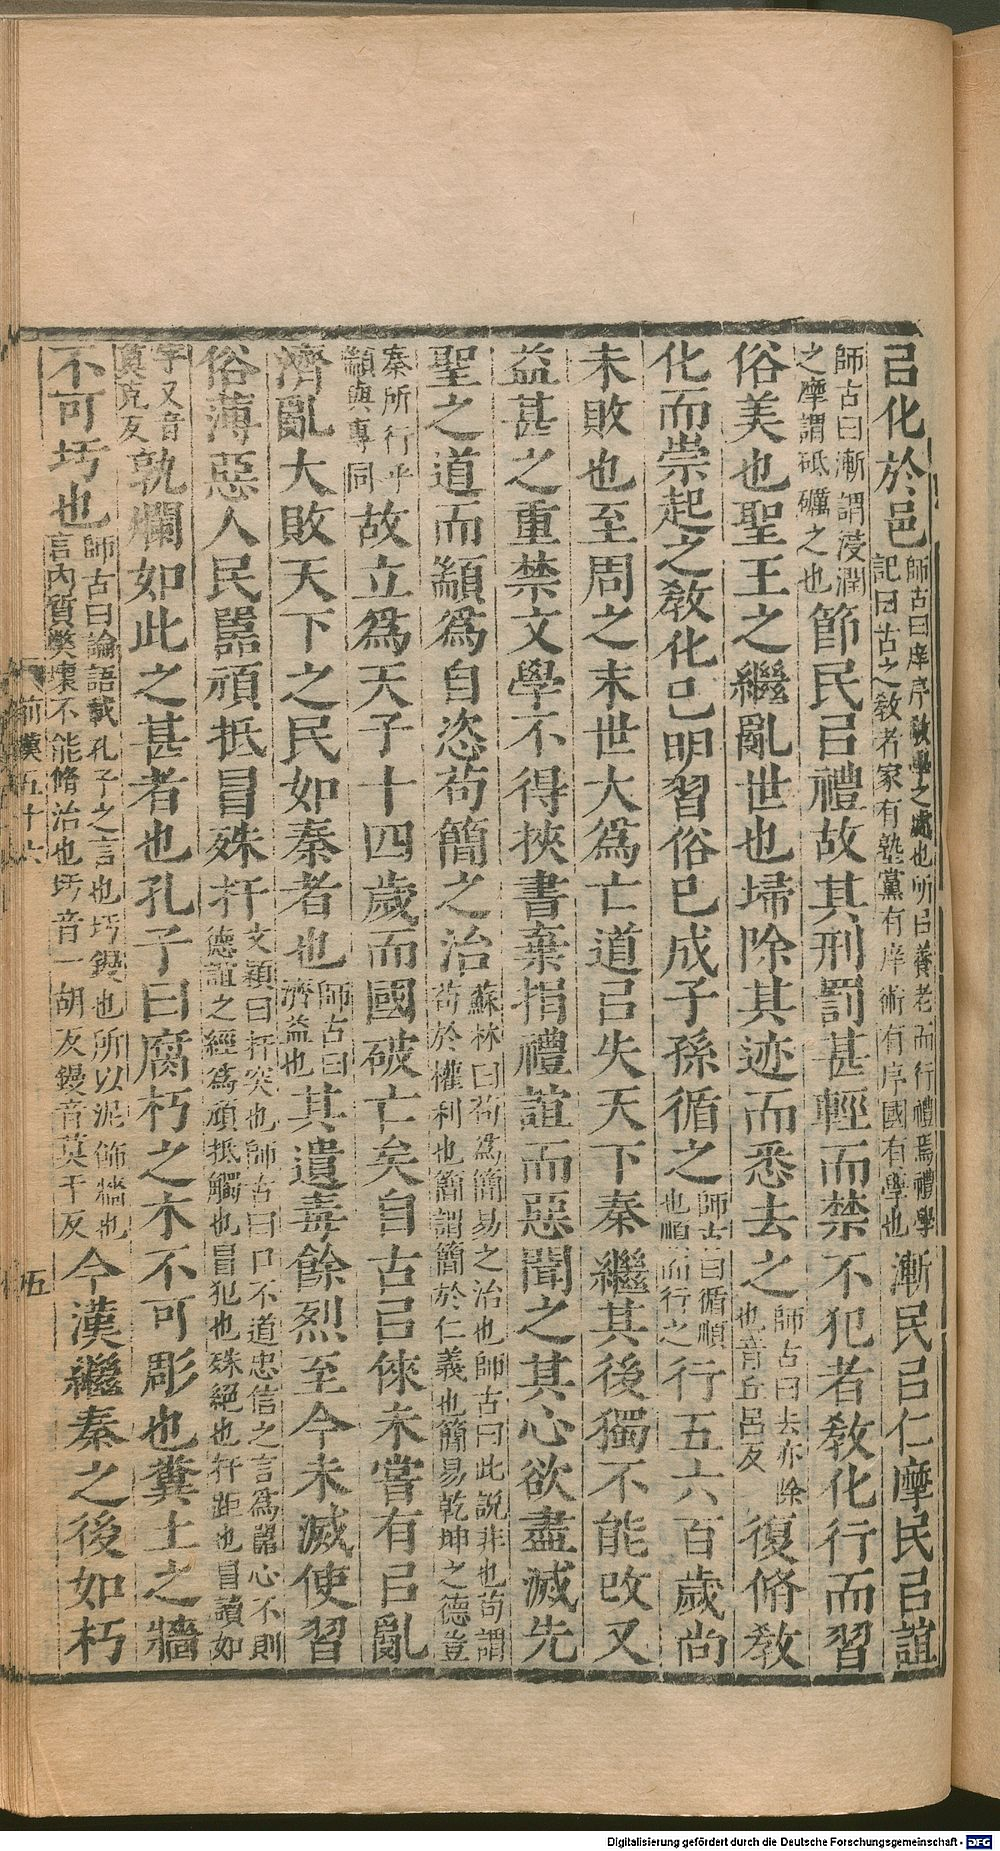 㠯化於邑師古曰庠序敎學之處也所㠯養老而行禮焉禮學記曰古之敎者家有塾黨有庠術有序國有學也漸民㠯仁摩民㠯誼
師古曰漸謂浸潤之摩謂砥礪之也節民㠯禮故其刑罰甚輕而禁不犯者敎化行而習
俗美也聖王之繼亂世也埽除其迹而悉去之師古曰去亦除也音丘呂反復脩敎
化而崇起之敎化已明習俗已成子孫循之師古曰循順也順而行之行五六百歲尚
未敗也至周之末世大爲亡道㠯失天下秦繼其後獨不能改又
益甚之重禁文學不得挾書棄捐禮誼而惡聞之其心欲盡滅先
聖之道而顓爲自恣苟簡之治蘇林曰苟爲簡易之治也師古曰此說非也苟謂苟於權利也簡謂簡於仁義也簡易乾坤之德豈
秦所行乎顓與專同故立爲天子十四歲而國破亡矣自古㠯倈未嘗有㠯亂
濟亂大敗天下之民如秦者也師古曰濟益也其遺毒餘烈至今未滅使習
俗薄惡人民嚚頑抵冒殊扞文穎曰扞突也師古曰口不道忠信之言爲嚚心不則德誼之經爲頑抵觸也冒犯也殊絕也扞距也冒讀如
字又音莫克反孰爛如此之甚者也孔子曰腐朽之木不可彫也糞土之牆
不可圬也師古曰論語載孔子之言也圬鏝也所以泥飾牆也言內質獘壞不能脩治也圬音一胡反鏝音莫干反今漢繼秦之後如朽
前漢五十六
五
Digitalisierung gefördert durch die Deutsche Forschungsgemeinschaft - DFG